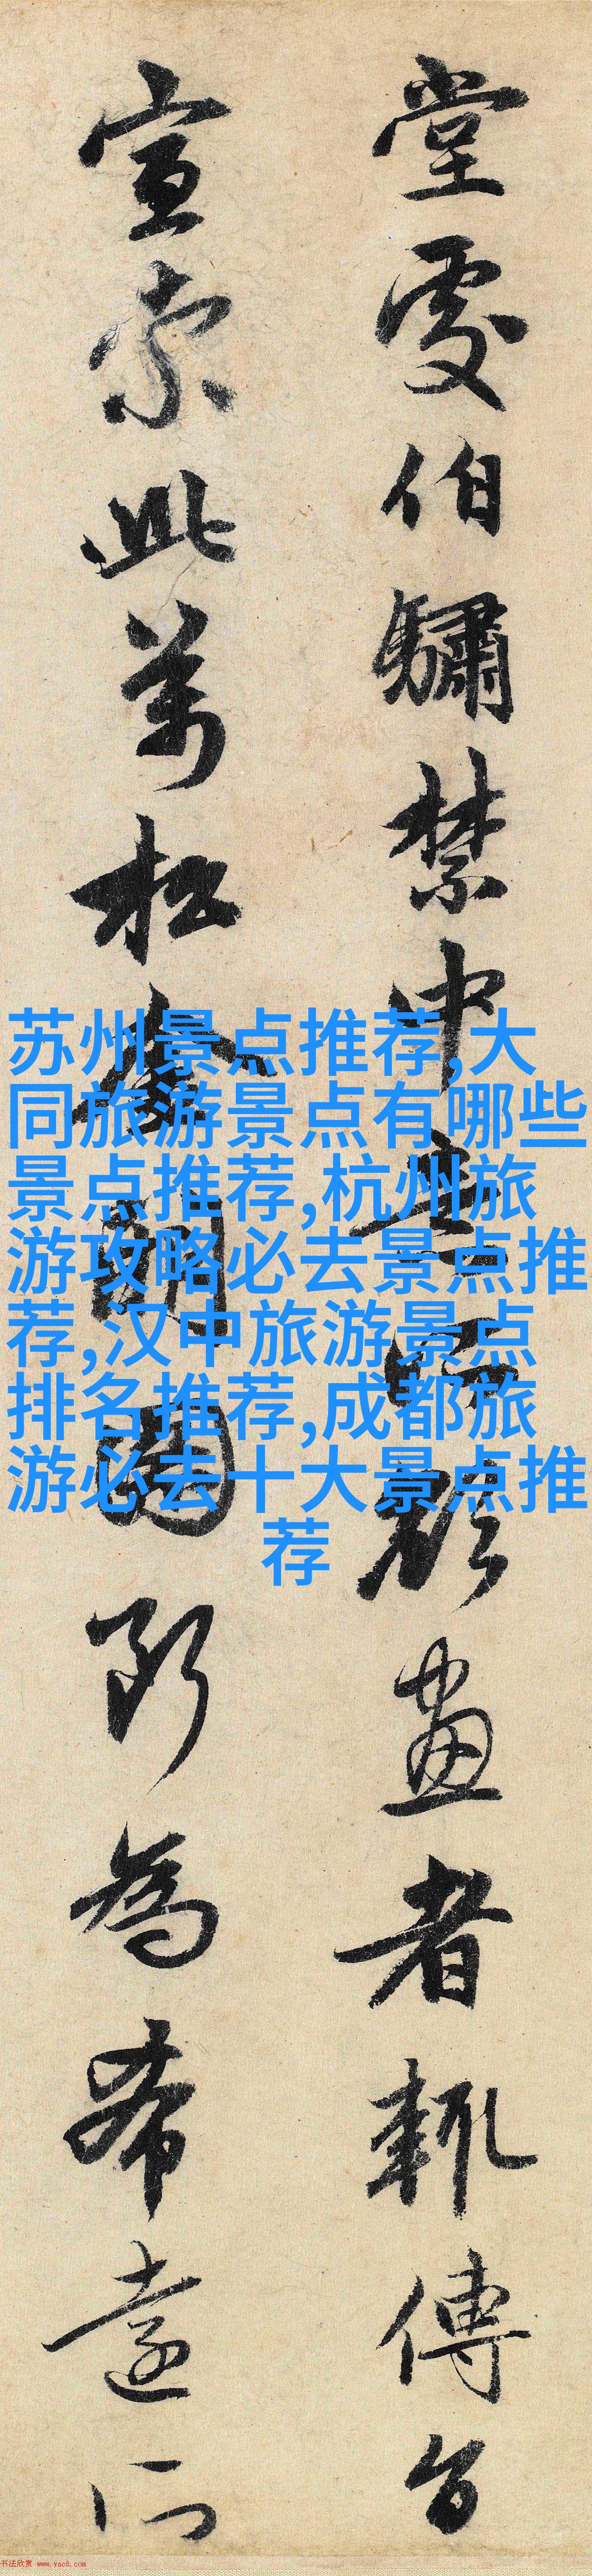 堂處伯驌禁中意所欲畫者輒傳旨
宣索此萬松金闕圖斷為希遠所
苏州景点推荐,大
同旅游景点有哪些
景点推荐,杭州旅
游攻略必去景点推
荐,汉中旅游景点
排名推荐,成都旅
游必去十大景点推
荐
书法欣赏 www.yac8.com